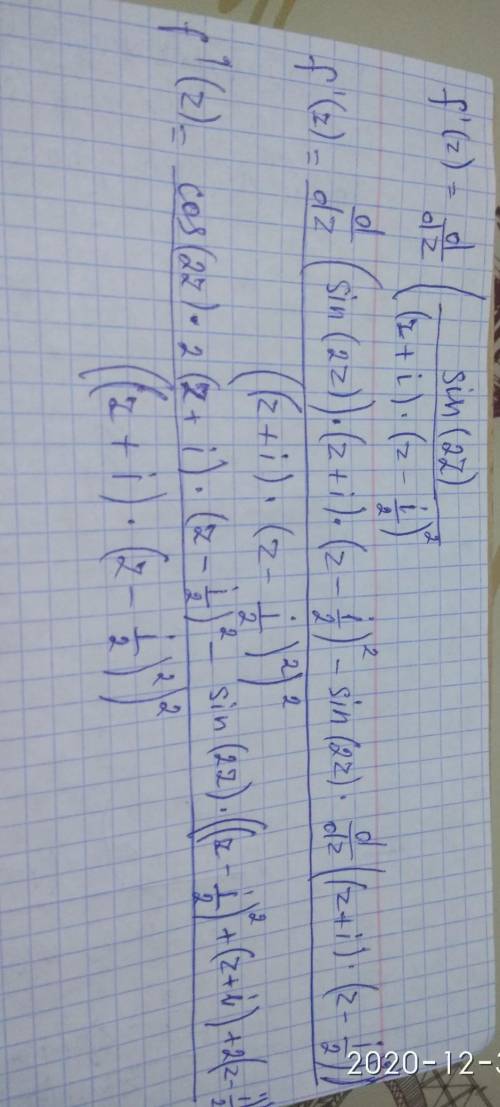 f'(z) = d/dz ( sin(2z) / ((z+i)·(z - i/2)²
f'(z) = d/dz (sin(2z))·(z+i)·(z - i/2)² - sin(2z)· d/dz((z+i)·(z - i/2)²) / ((z+i)·(z - i/2)²)²
f'(z) = cos(2z)·2(z+i)·(z - i/2)² - sin(2z)·((z - i/2)² + (z+i) + 2(z - i/2 / ((z+i)·(z - i/2)²)²
2020-12-3